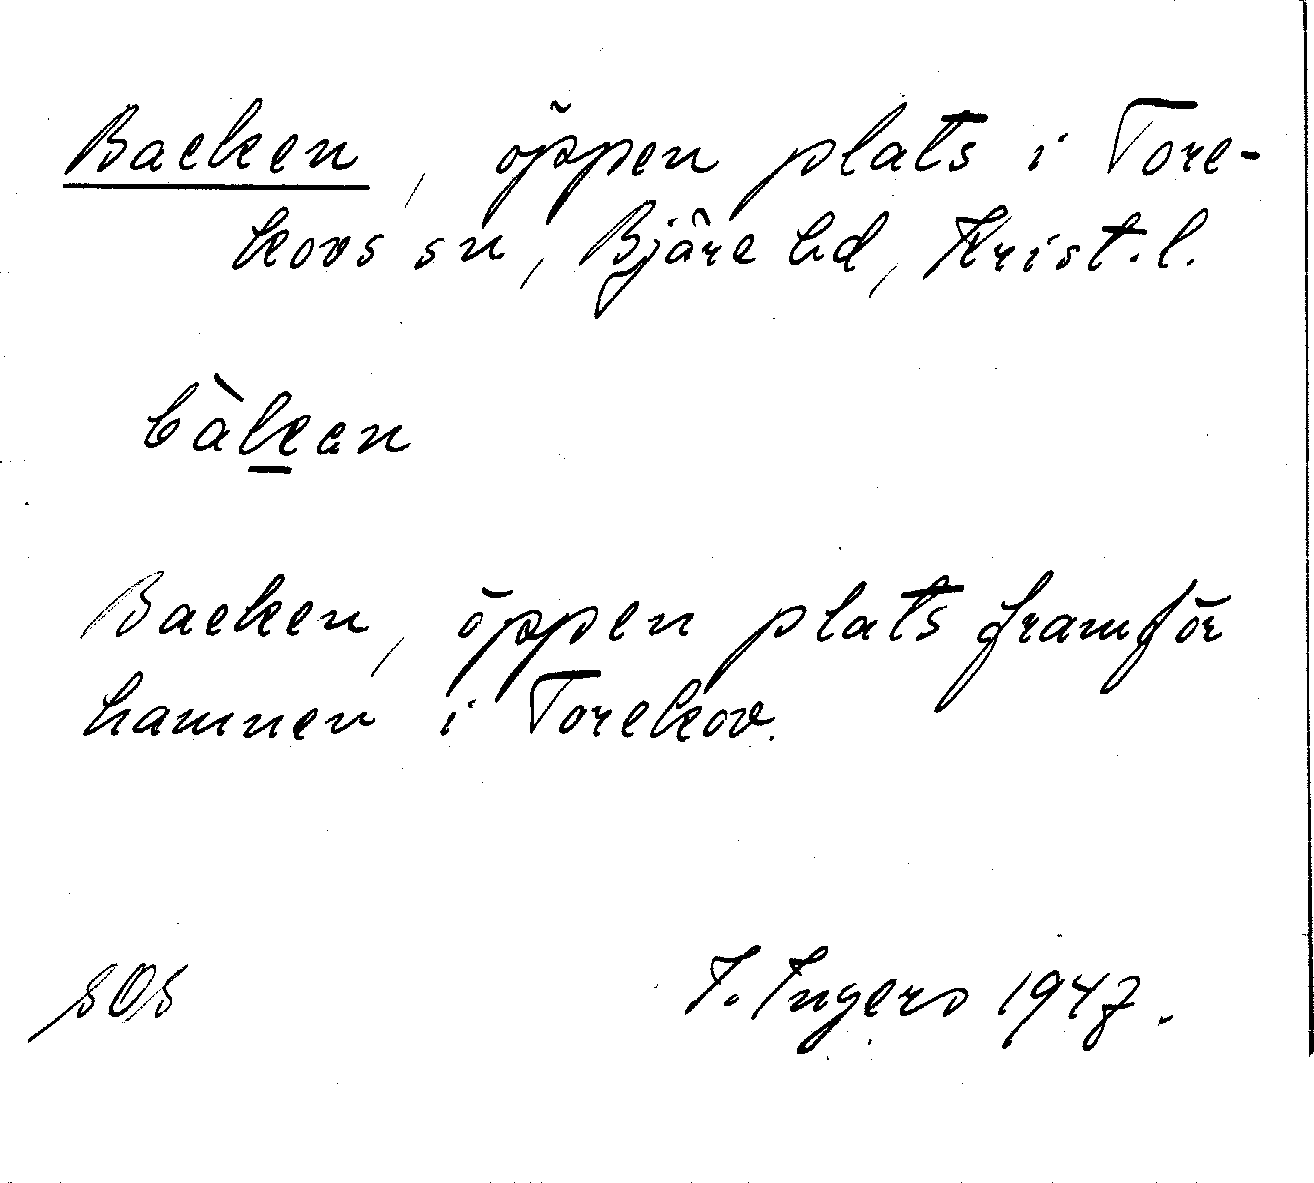 Backen, öppen plats i Tore-
kovs sn, Bjäre hd, Krist. l.
bàkan
Backen, öppen plats framför
hamnen i Torekov.
I. Ingers 1947.